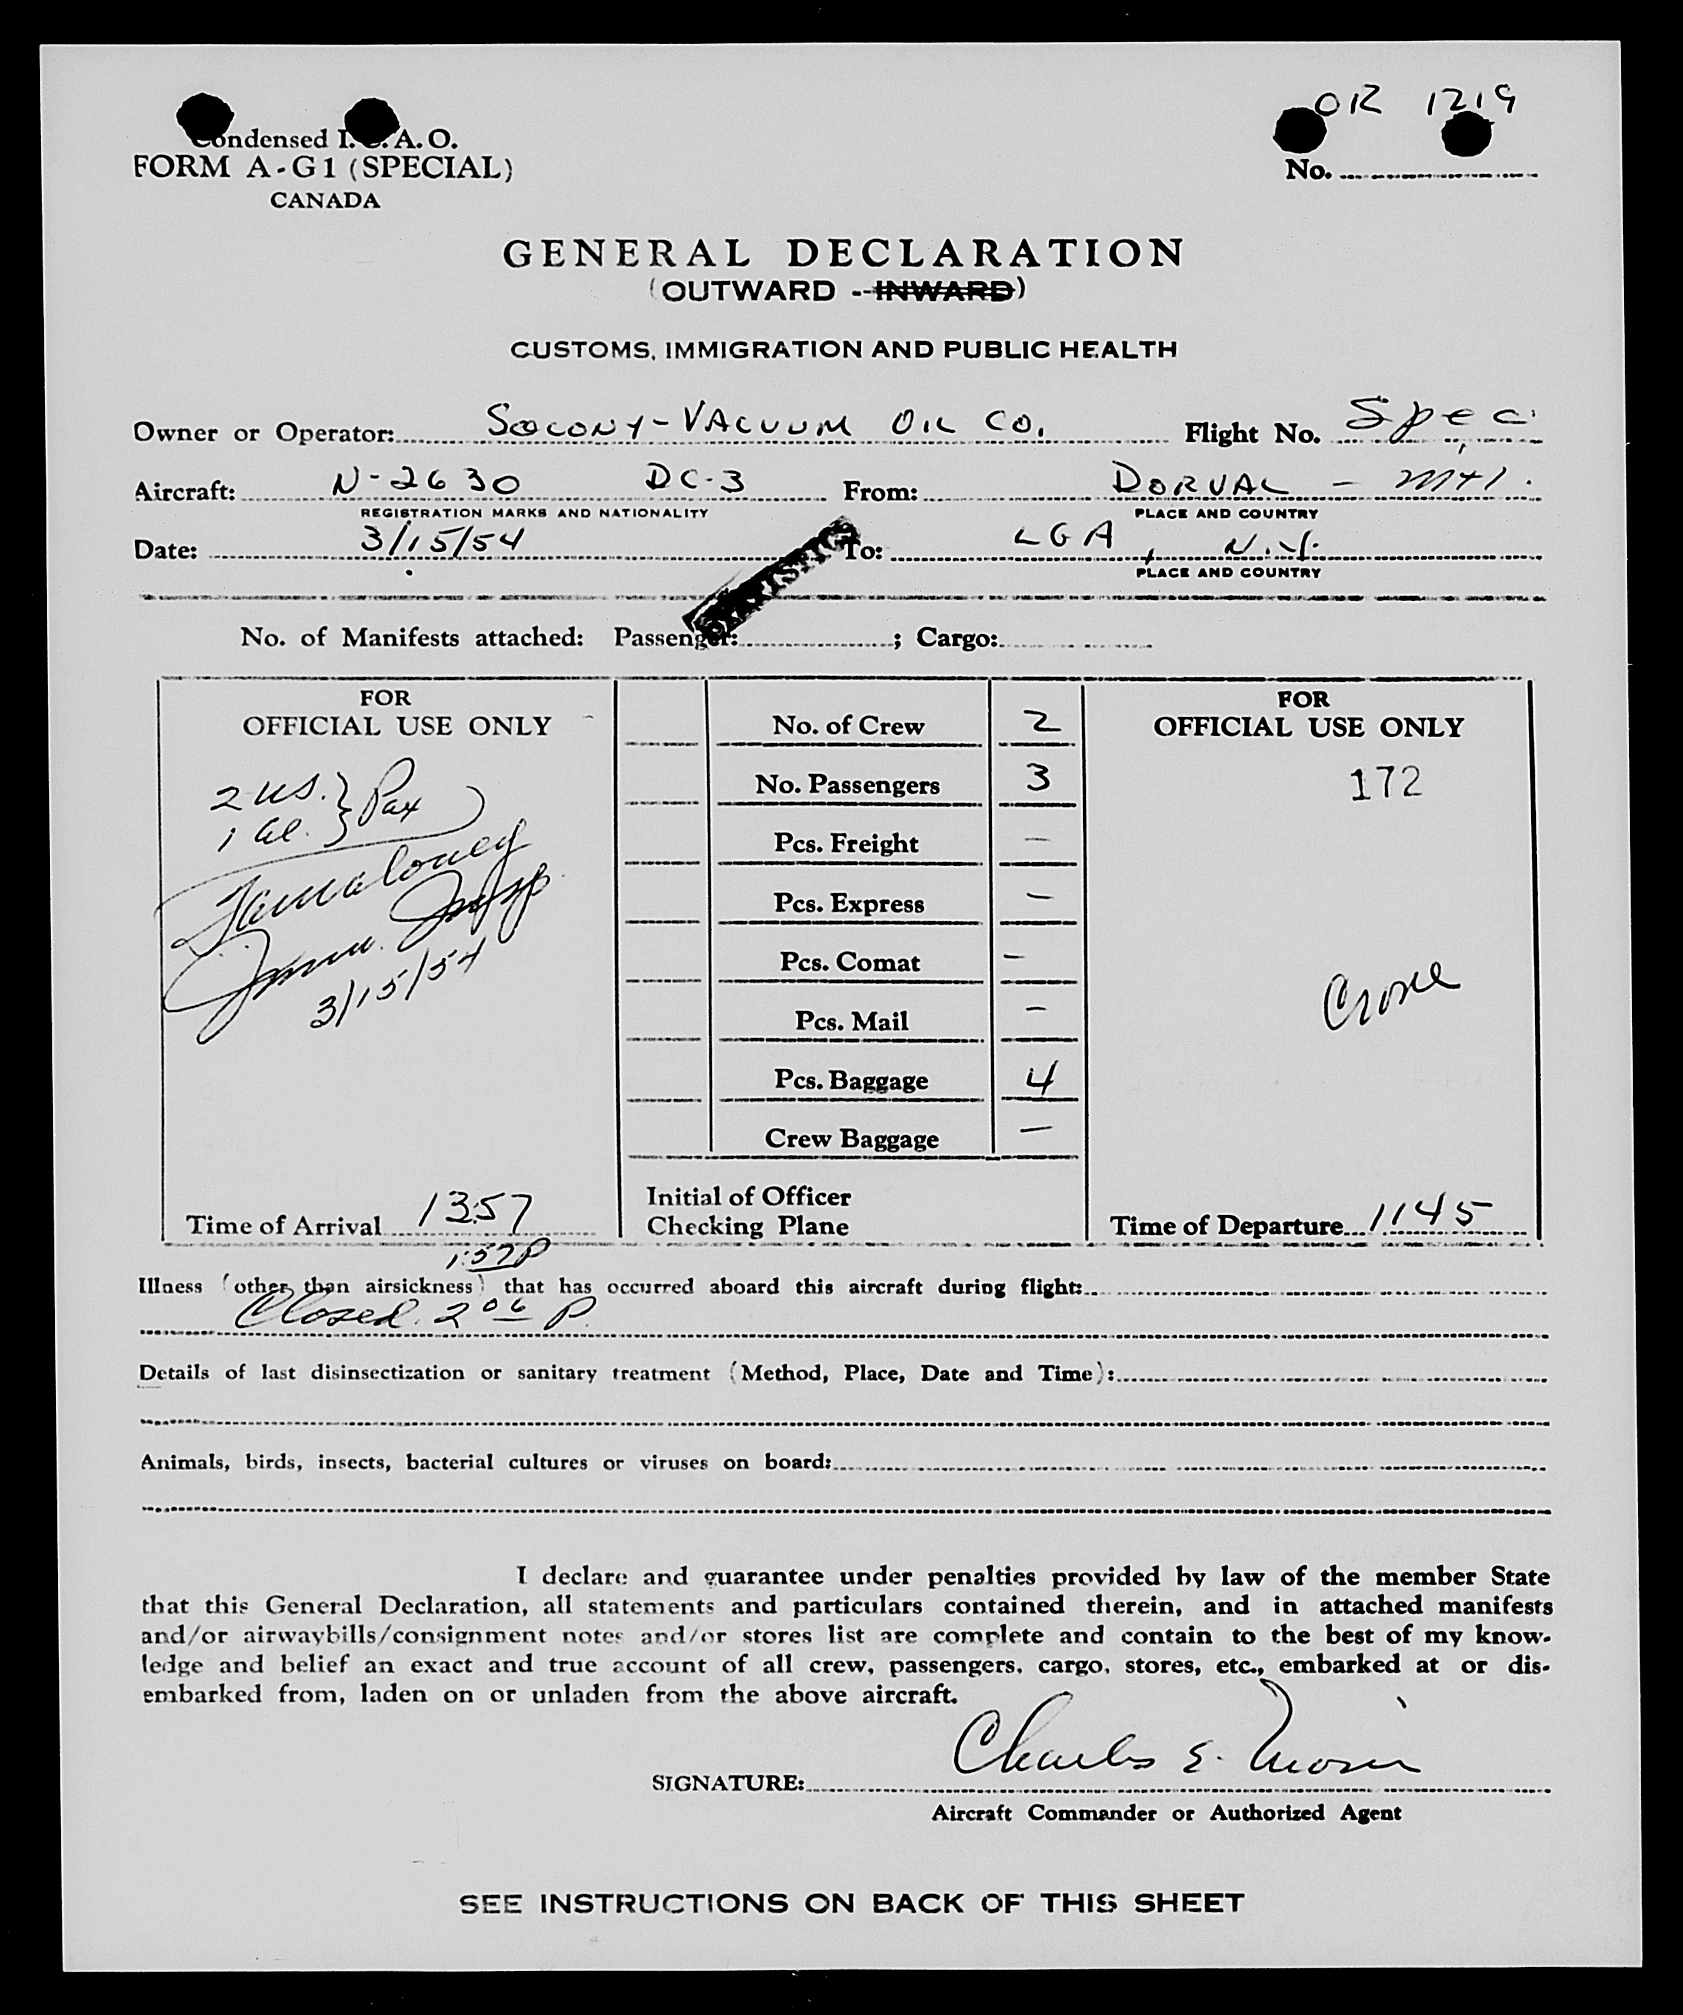 OR 1219
Condensed I.C.A.O.
FORM A-G1 (SPECIAL)
CANADA
No.
GENERAL DECLARATION
(OUTWARD -- INWARD)
CUSTOMS, IMMIGRATION AND PUBLIC HEALTH
Owner or Operator: SOCONY-VACUUM OIL CO. Flight No. Spec
Aircraft: N-2630 DC-3 From: DORVAL - Mtl.
REGISTRATION MARKS AND NATIONALITY PLACE AND COUNTRY
Date: 3/15/54 To: LGA, N.Y.
PLACE AND COUNTRY
STATISTICS
No. of Manifests attached: Passenger: ; Cargo:
FOR
OFFICIAL USE ONLY
2 US. } Pax
1
3/15/54
Time of Arrival 1357
1:57P
No. of Crew 2
No. Passengers 3
Pcs. Freight —
Pcs. Express —
Pcs. Comat —
Pcs. Mail —
Pcs. Baggage 4
Crew Baggage —
Initial of Officer
Checking Plane
FOR
OFFICIAL USE ONLY
172
Time of Departure 1145
Illness (other than airsickness) that has occurred aboard this aircraft during flight:
Closed. 2 06 P.
Details of last disinsectization or sanitary treatment (Method, Place, Date and Time):
Animals, birds, insects, bacterial cultures or viruses on board:
I declare and guarantee under penalties provided by law of the member State
that this General Declaration, all statements and particulars contained therein, and in attached manifests
and/or airwaybills/consignment notes and/or stores list are complete and contain to the best of my know-
ledge and belief an exact and true account of all crew, passengers, cargo, stores, etc., embarked at or dis-
embarked from, laden on or unladen from the above aircraft.
SIGNATURE: Charles E.
Aircraft Commander or Authorized Agent
SEE INSTRUCTIONS ON BACK OF THIS SHEET